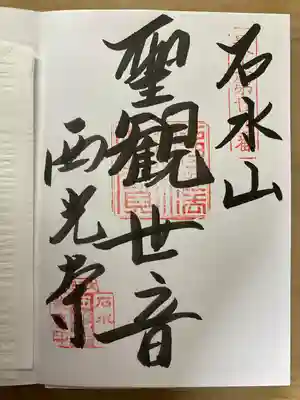 石水山
聖観世音
西光寺